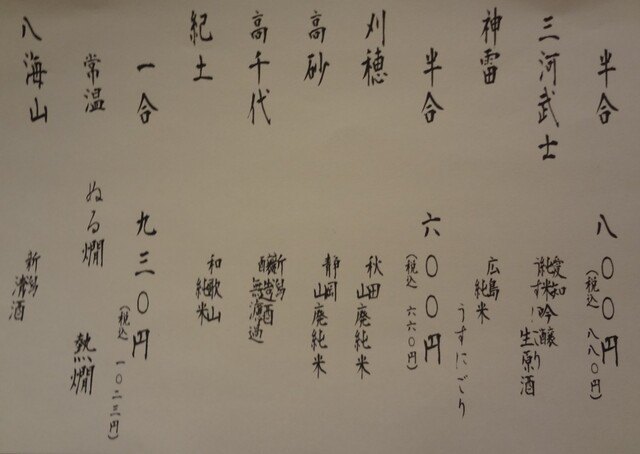 半合 八〇〇円
(税込 八八〇円)
三河武士
愛知
純米吟醸
生原酒
神雷
広島
純米
うすにごり
半合 六〇〇円
(税込 六六〇円)
刈穂
秋田 山廃純米
高砂
静岡 山廃純米
高千代
新潟
無濾過
紀土
和歌山
純米
一合 九三〇円
(税込 一〇二三円)
常温 ぬる燗 熱燗
八海山
新潟
清酒